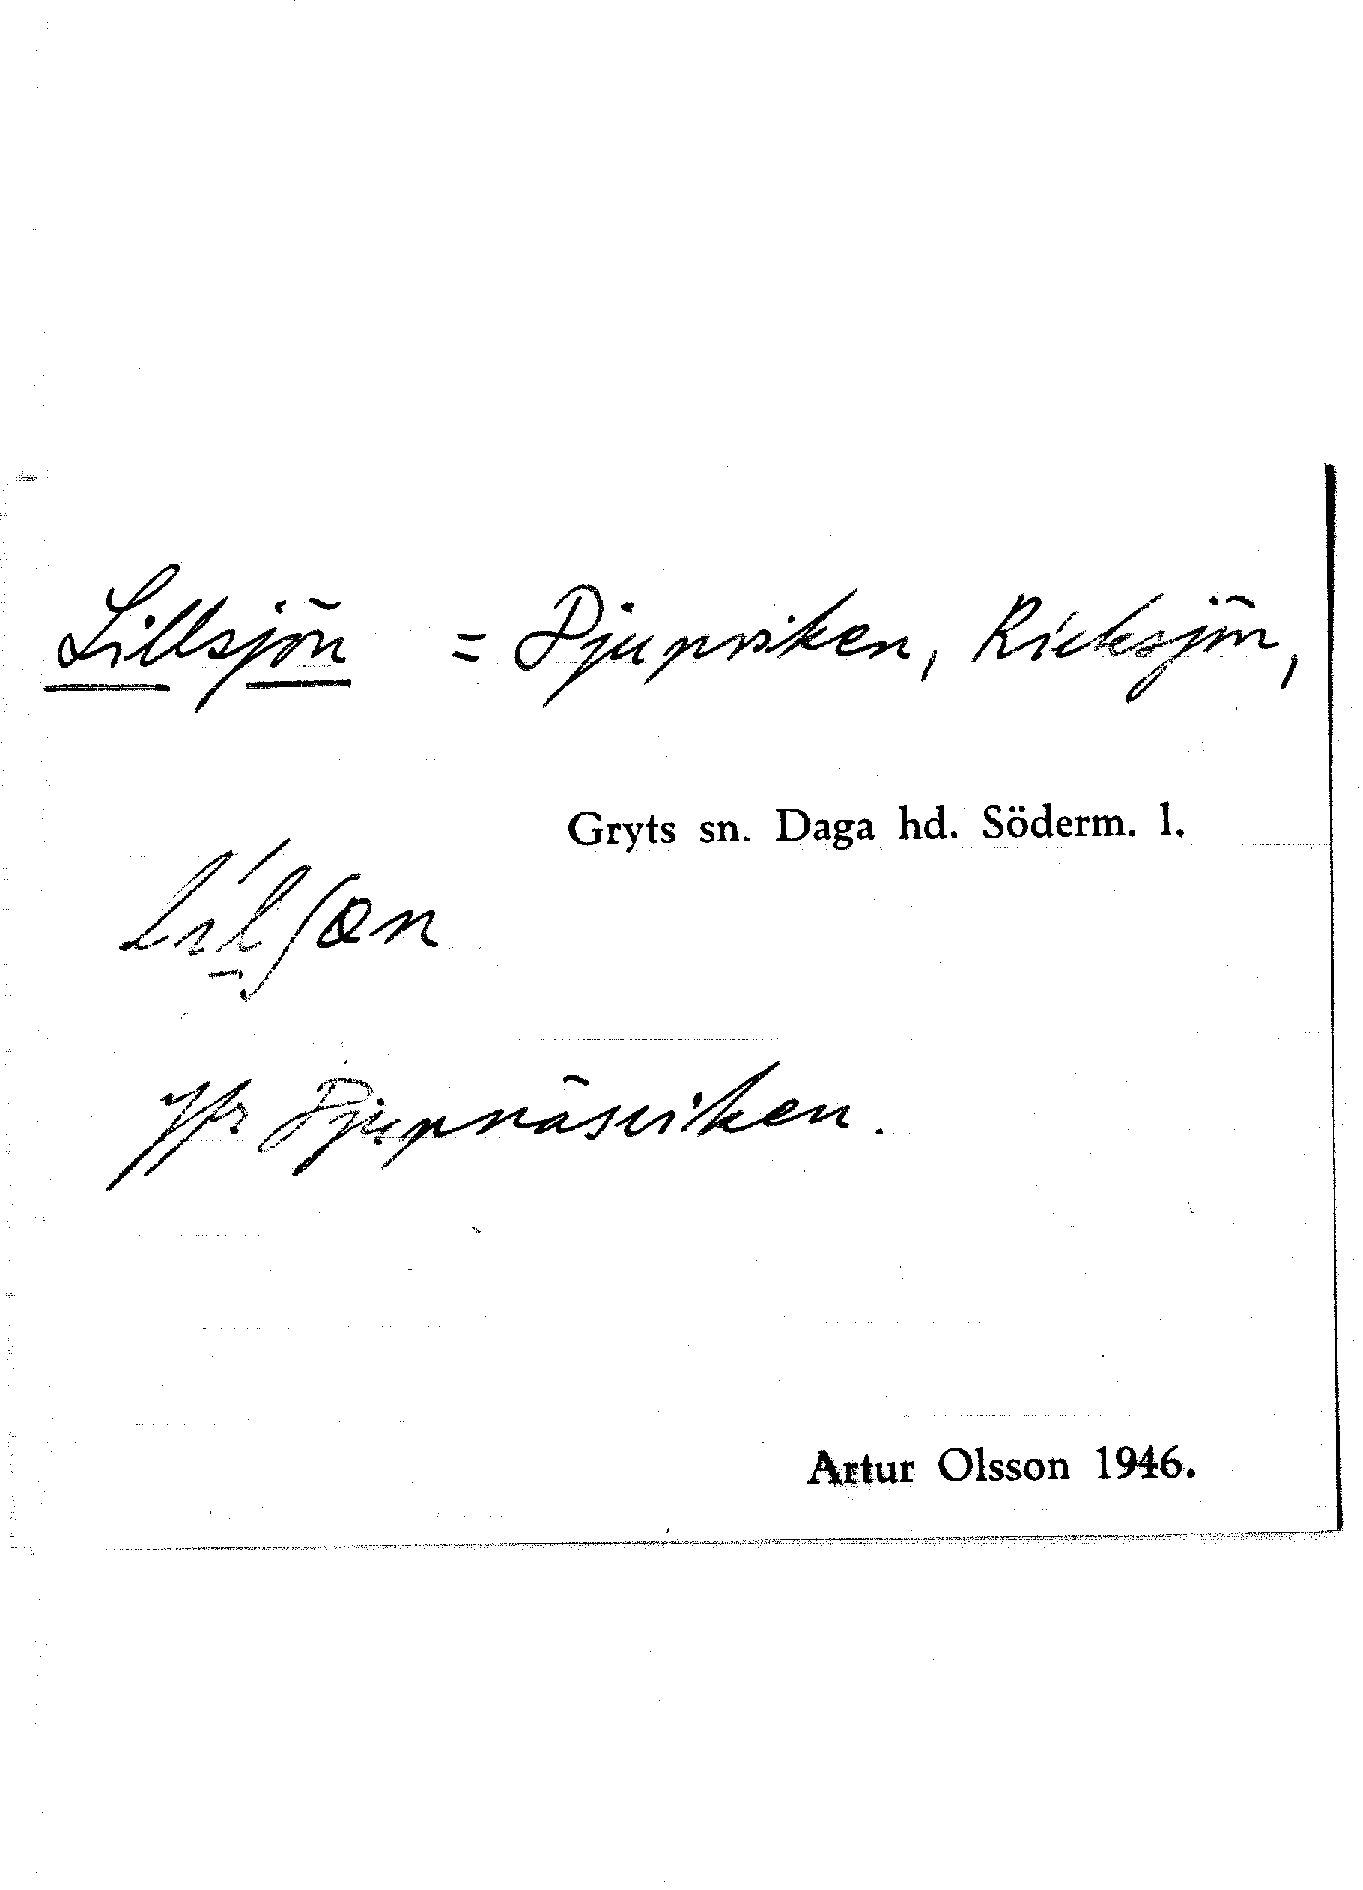 Lillsjön = Djupviken, Ricksjön,
Gryts sn. Daga hd. Söderm. l.
Jfr Djupnäsviken.
Artur Olsson 1946.